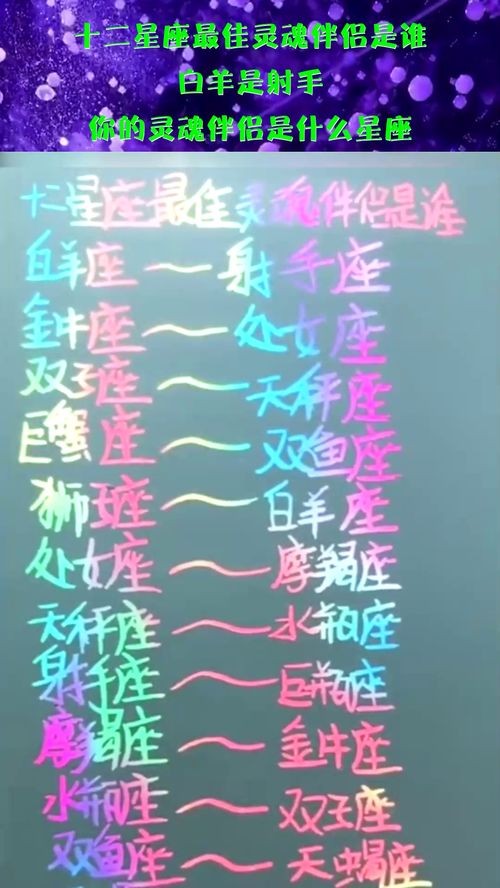 十二星座最佳灵魂伴侣是谁
白羊是射手
你的灵魂伴侣是什么星座
十二星座最佳灵魂伴侣是谁
白羊座～射手座
金牛座～处女座
双子座～天秤座
巨蟹座～双鱼座
狮王座～白羊座
处女座～摩羯座
天秤座～水瓶座
射手座～巨瓶座
摩羯座～金牛座
水瓶座～双王座
双鱼座～天蝎座